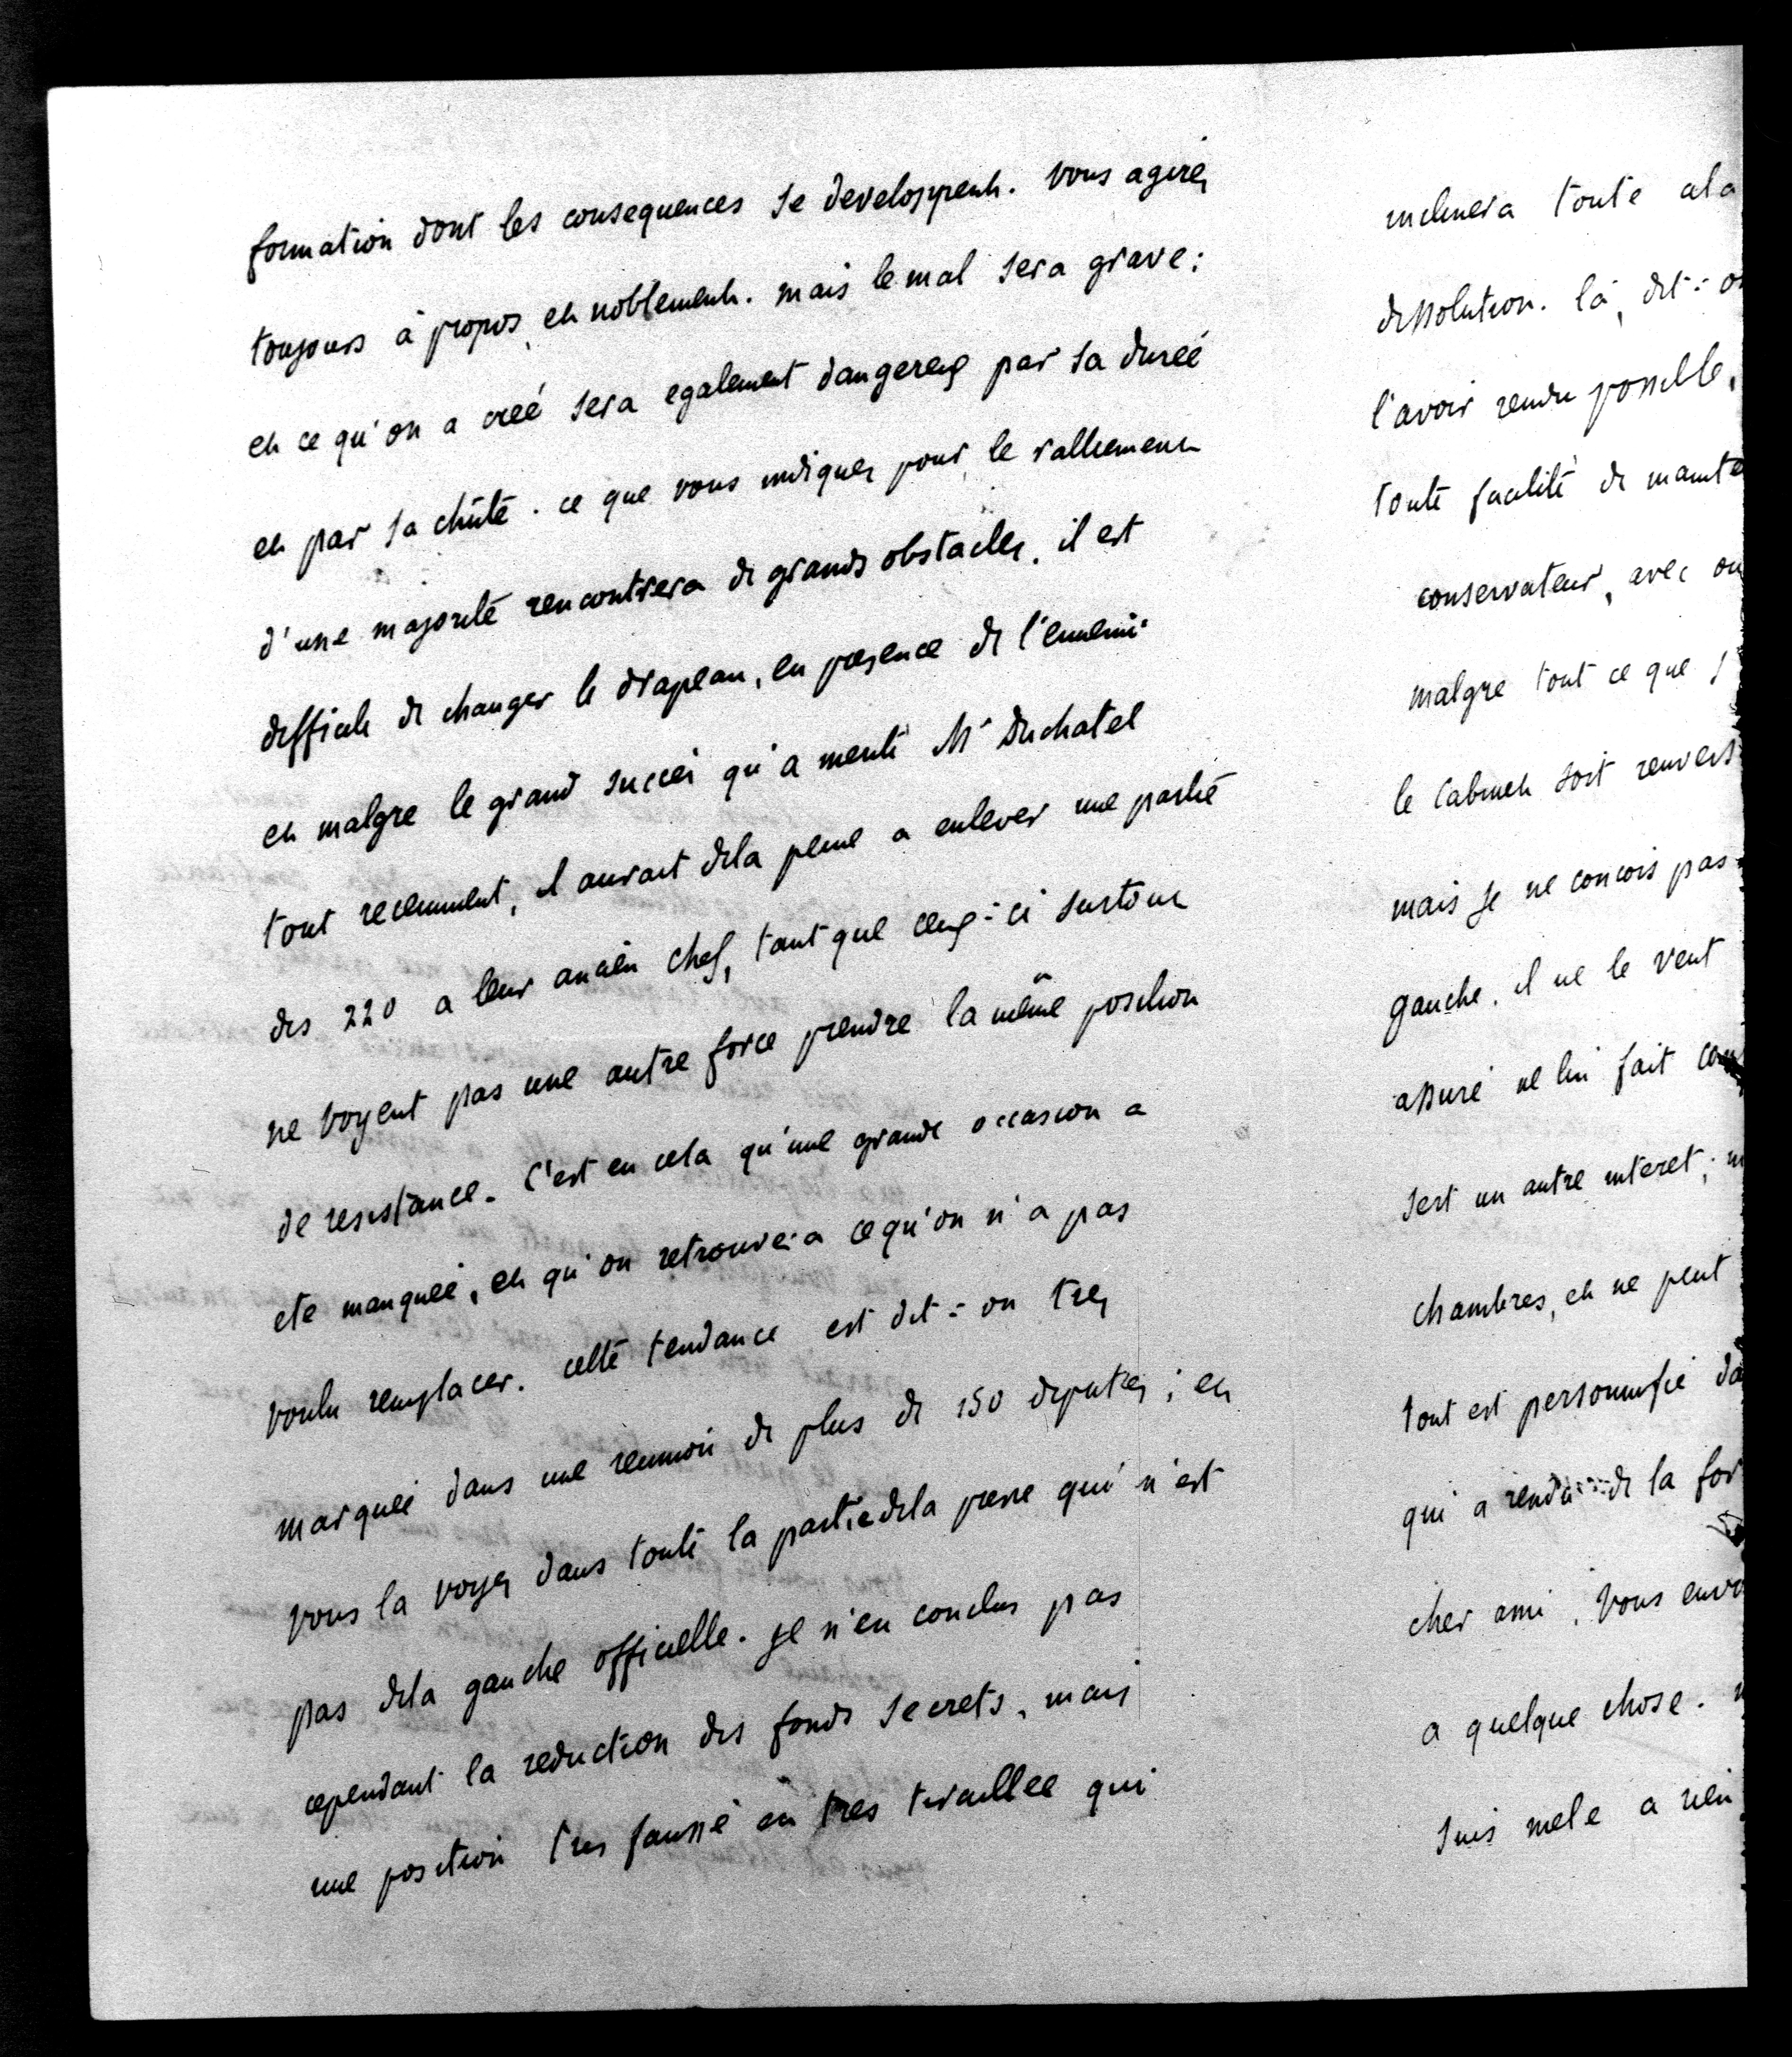 formation dont les consequences se developpent. vous agirez
toujours à propos, et noblement. mais le mal sera grave:
et ce qu'on a créé sera egalement dangereux par sa durée
et par sa chûte. ce que vous indiquez pour le ralliement
d'une majorité rencontrera de grands obstacles. il est
difficile de changer le drapeau, en presence de l'ennemi
et malgre le grand succès qu'a merité Mr Duchatel
tout recemment, il aurait dela peine a enlever une partie
des 220 a leur ancien chef, tant que ceux-ci surtout
ne voyent pas une autre force prendre la même position
de resistance. C'est en cela qu'une grande occasion a
ete manquée, et qu'on retrouvera ce qu'on n'a pas
voulu remplacer. cette tendance est dit-on très
marquée dans une reunion de plus de 150 deputés; et
vous la voyez dans toute la partie dela presse qui n'est
pas dela gauche officielle. je n'en conclus pas
cependant la reduction des fonds secrets, mais
une position très fausse et très tiraillee qui
inclinera toute a la
dissolution. là, dit-on
l'avoir rendu possible,
toute facilité de mainte
conservateur, avec ou
malgre tout ce que s
le Cabinet soit renvers
mais je ne concois pas
gauche. il ne le veut
assuré ne lui fait
sert un autre interet; m
chambres, et ne peut
tout est personnifié da
qui a rendu de la for
cher ami, vous envo
a quelque chose.
suis mele a rien